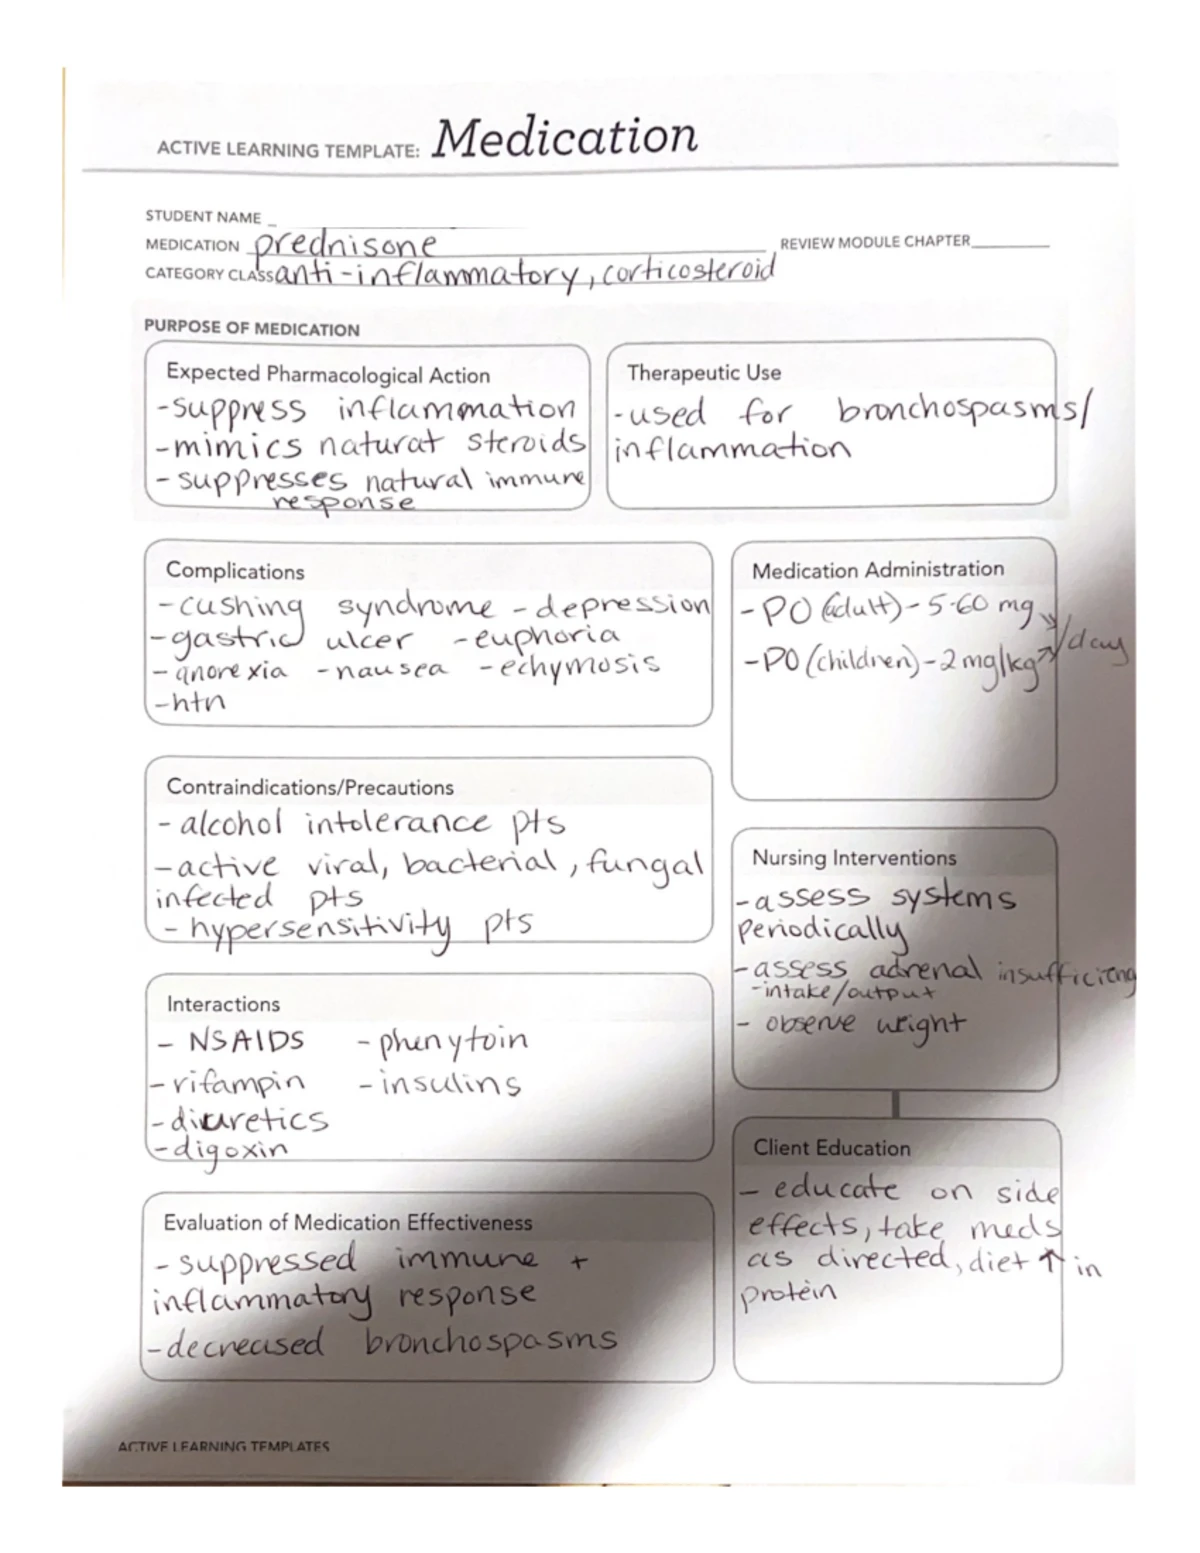 ACTIVE LEARNING TEMPLATE: Medication
STUDENT NAME _
MEDICATION prednisone
REVIEW MODULE CHAPTER
CATEGORY CLASS anti-inflammatory, corticosteroid
PURPOSE OF MEDICATION
Expected Pharmacological Action
-suppress inflammation
-mimics natural steroids
- suppresses natural immune
response
Therapeutic Use
-used for bronchospasms/
inflammation
Complications
-cushing syndrome - depression
-gastric ulcer -euphoria
- anorexia -nausea -echymosis
-htn
Medication Administration
-PO (adult)- 5-60 mg
-PO (children)-2mg/kg /day
Contraindications/Precautions
- alcohol intolerance pts
-active viral, bacterial, fungal
infected pts
- hypersensitivity pts
Nursing Interventions
-assess systems
periodically
-assess adrenal
-intake/output
- observe weight
Interactions
- NSAIDS - phenytoin
-rifampin -insulins
-diuretics
-digoxin
Client Education
- educate on side
effects, take meds
as directed, diet ↑ in
protein
Evaluation of Medication Effectiveness
-suppressed immune +
inflammatory response
-decreased bronchospasms
ACTIVE LEARNING TEMPLATES